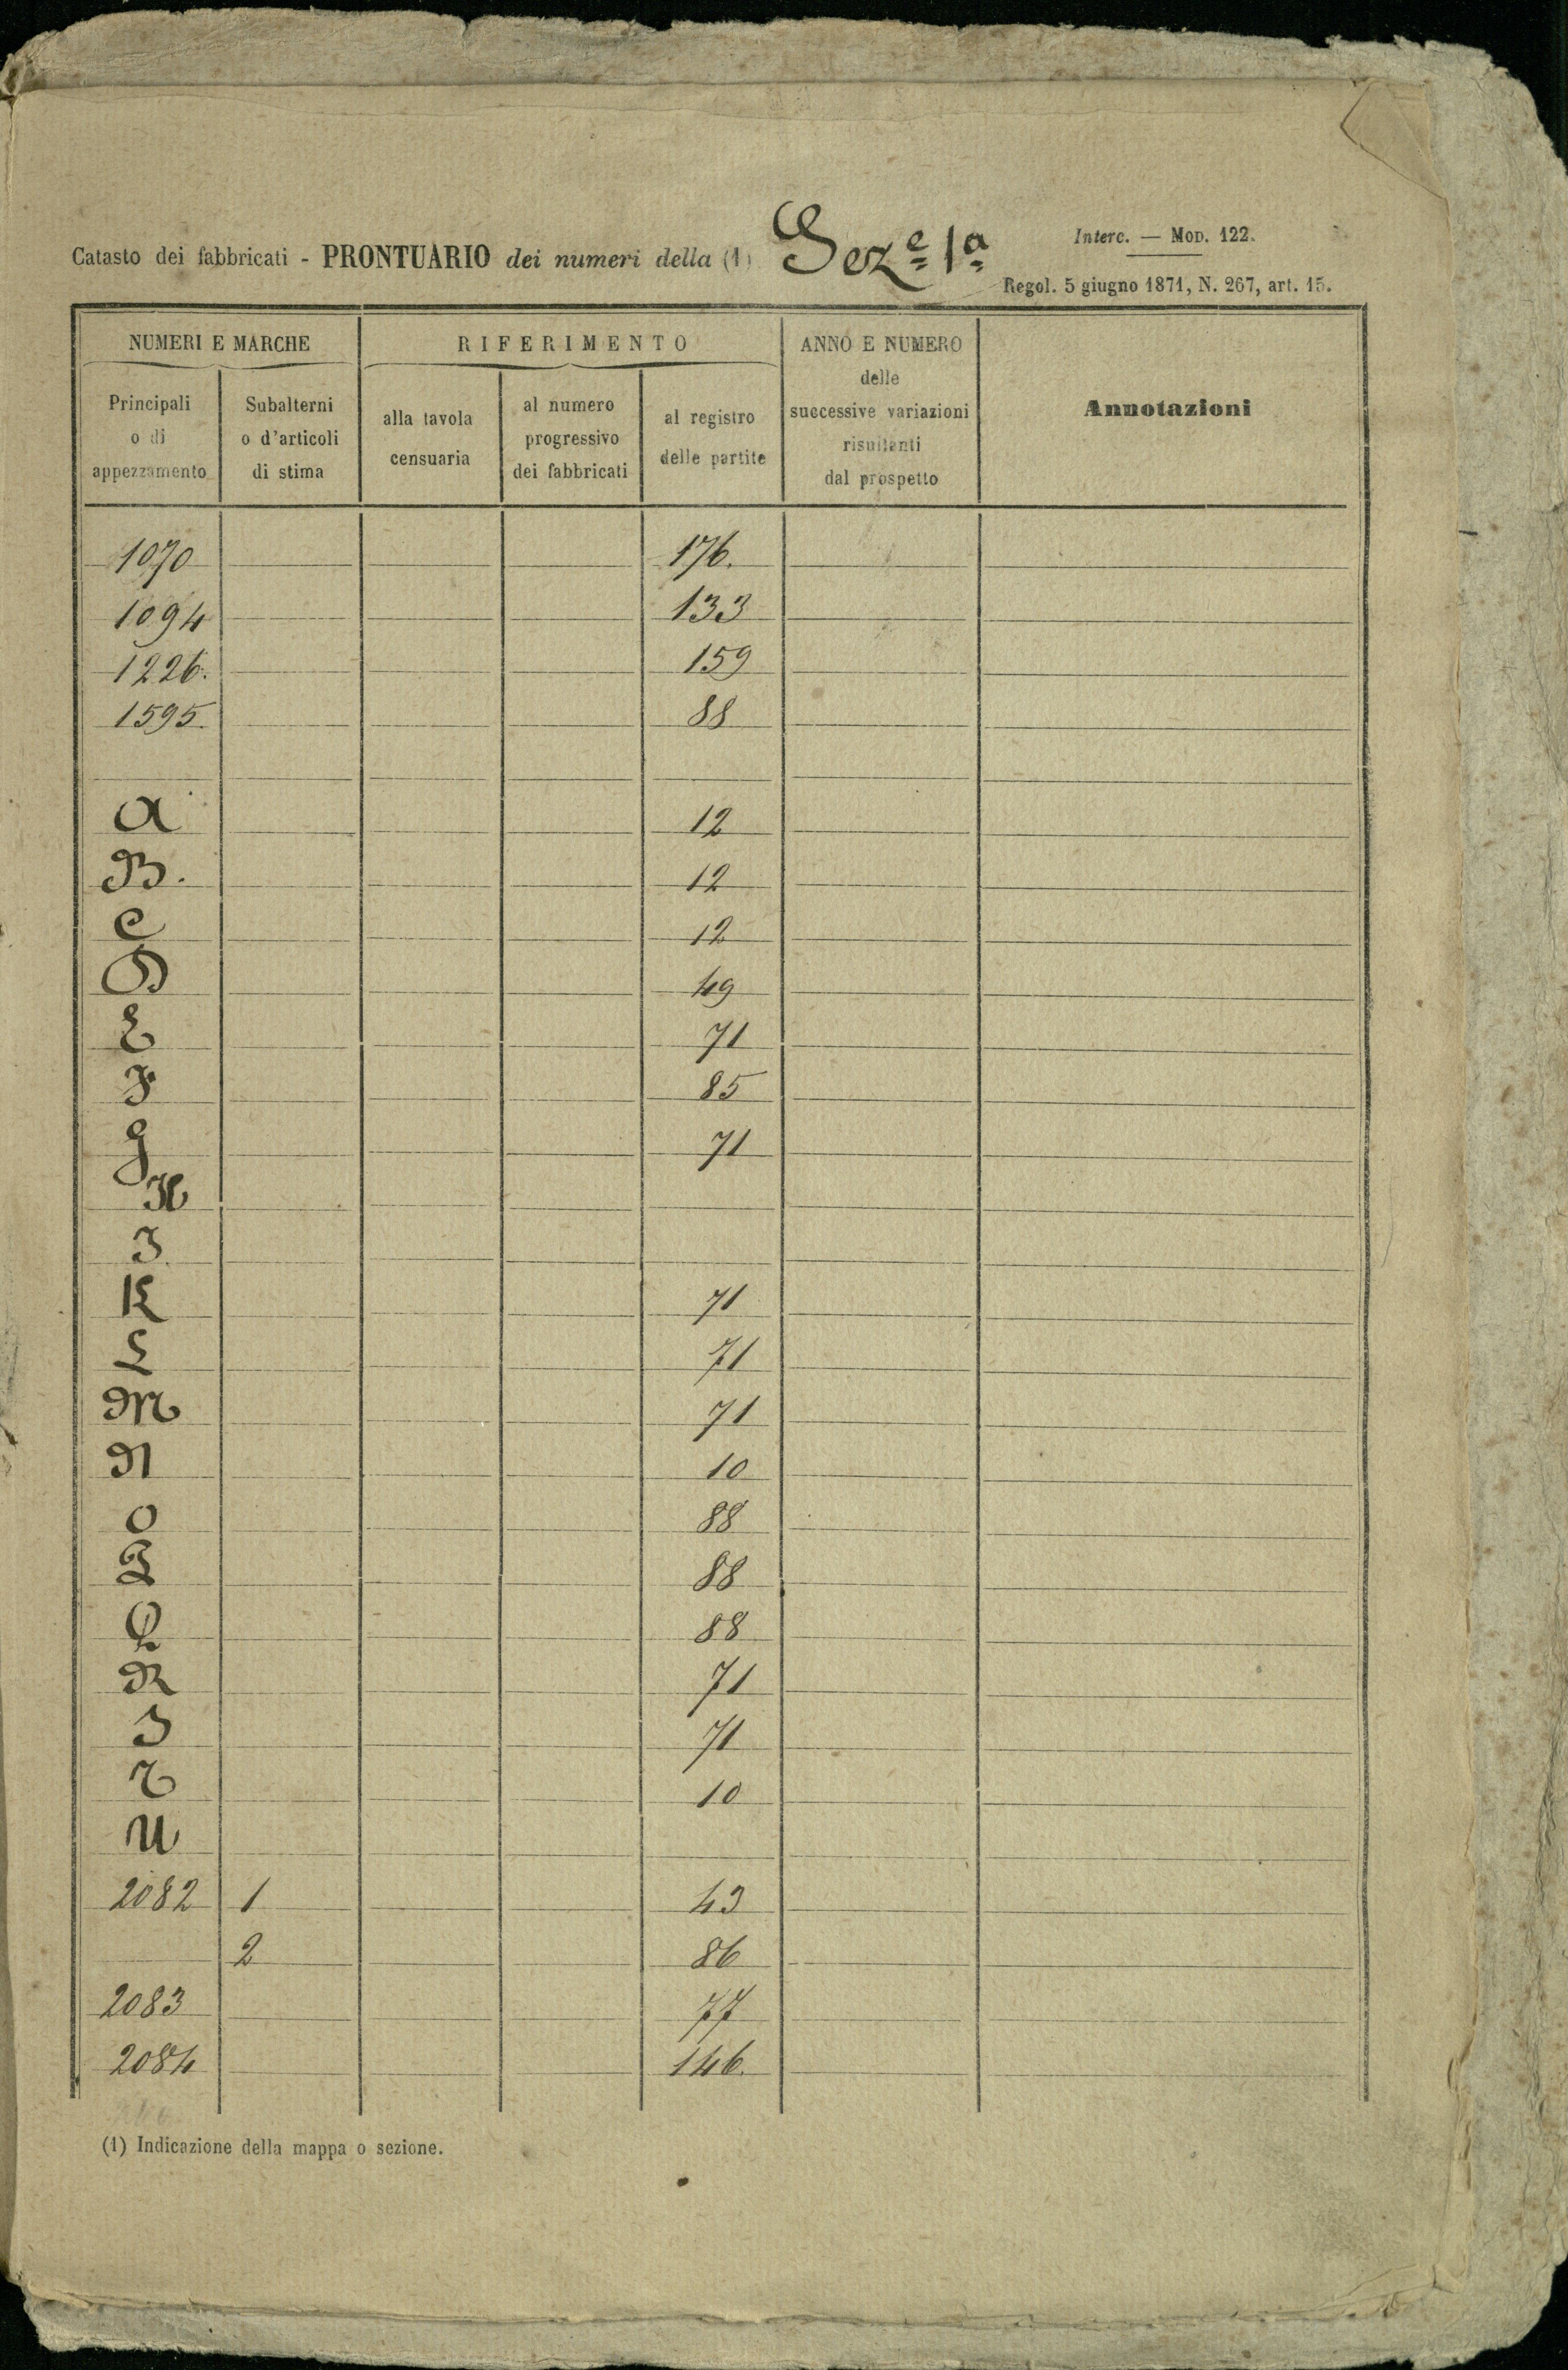 Catasto dei fabbricati - PRONTUARIO dei numeri della (1) Seze 1a
Interc. — Mod. 122.
Regol. 5 giugno 1871, N. 267, art. 15.
NUMERI E MARCHE
Principali
o di
appezzamento
Subalterni
o d'articoli
di stima
RIFERIMENTO
alla tavola
censuaria
al numero
progressivo
dei fabbricati
al registro
delle partite
ANNO E NUMERO
delle
successive variazioni
risultanti
dal prospetto
Annotazioni
1070 176.
1094 133
1226. 159
1595 88
A 12
B. 12
C 12
D 49
E 71
F 85
G 71
H
I
K 71
L 71
M 71
N 10
O 88
P 88
Q 88
R 71
S 71
T 10
U
2082 1 43
2 86
2083 77
2084 146.
(1) Indicazione della mappa o sezione.